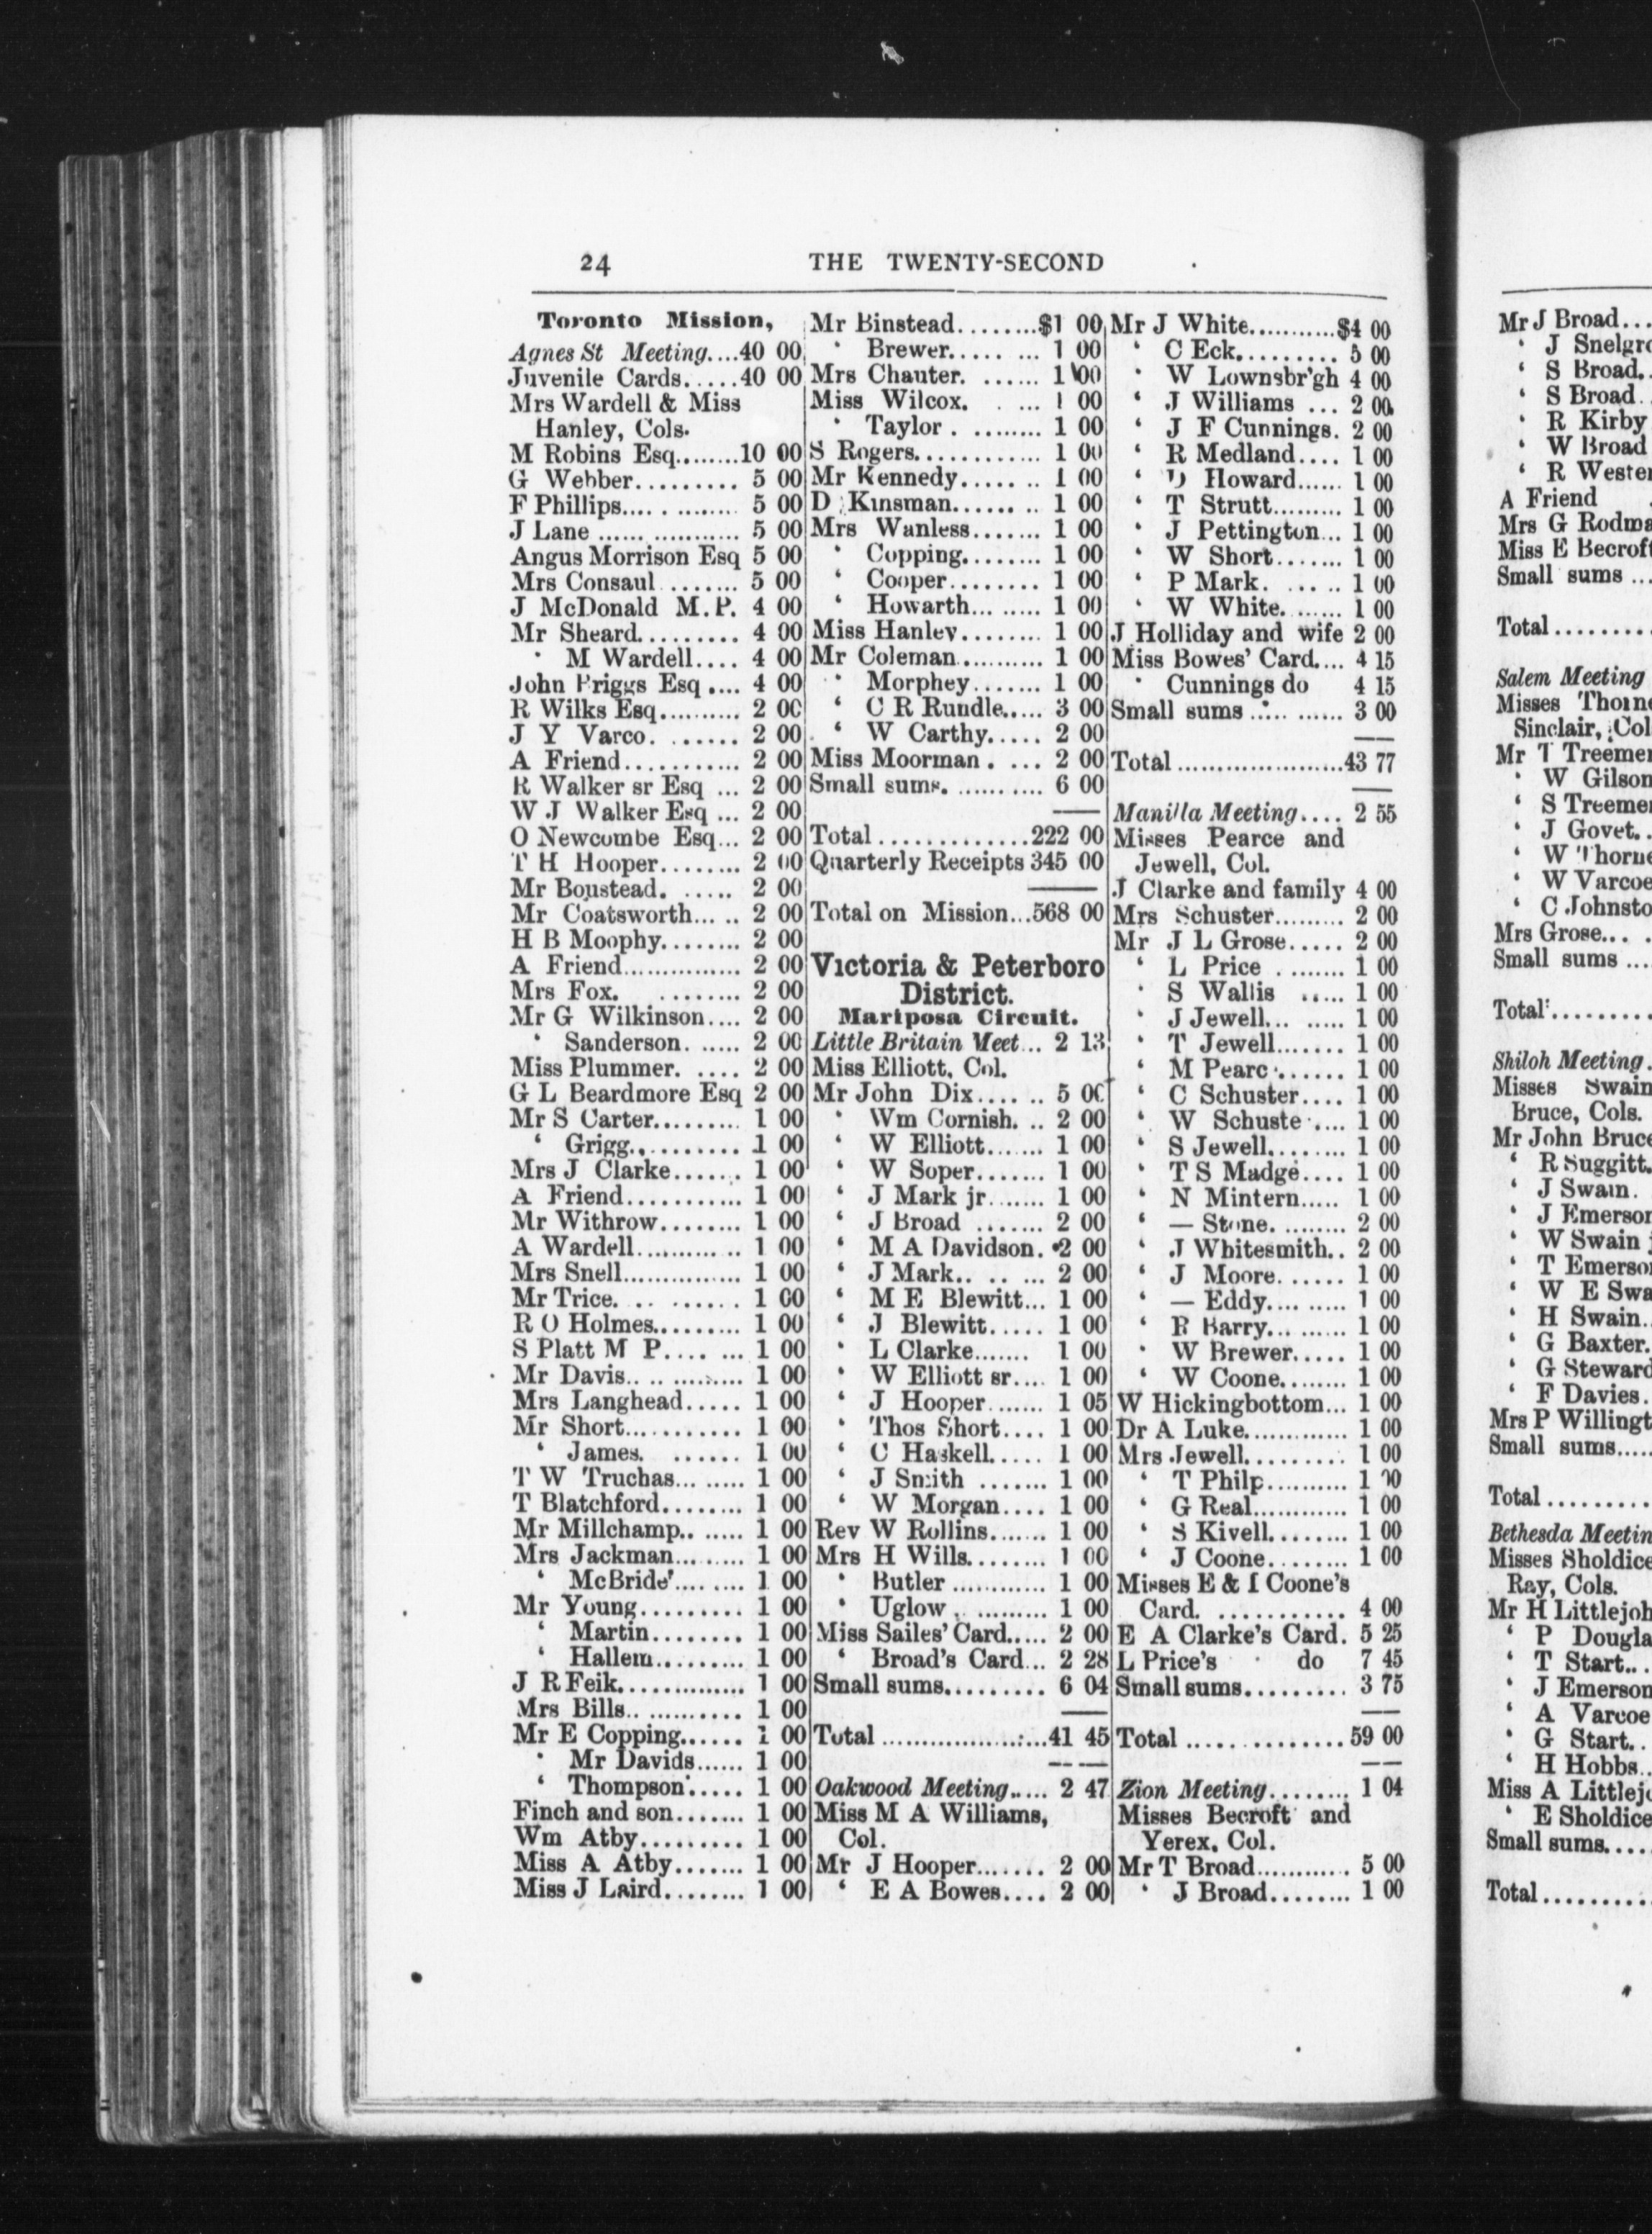 24 THE TWENTY-SECOND
Toronto Mission,
Agnes St Meeting....40 00
Juvenile Cards.....40 00
Mrs Wardell & Miss
Hanley, Cols.
M Robins Esq........10 00
G Webber......... 5 00
F Phillips.... . ........ 5 00
J Lane ...... ............ 5 00
Angus Morrison Esq 5 00
Mrs Consaul ........ 5 00
J McDonald M.P. 4 00
Mr Sheard......... 4 00
‘ M Wardell.... 4 00
John Briggs Esq .... 4 00
R Wilks Esq.......... 2 00
J Y Varco. ....... 2 00
A Friend........... 2 00
R Walker sr Esq ... 2 00
W J Walker Esq ... 2 00
O Newcombe Esq... 2 00
T H Hooper........ 2 00
Mr Boustead. ..... 2 00
Mr Coatsworth... .. 2 00
H B Moophy........ 2 00
A Friend.............. 2 00
Mrs Fox. ........ 2 00
Mr G Wilkinson.... 2 00
‘ Sanderson. ..... 2 00
Miss Plummer. .... 2 00
G L Beardmore Esq 2 00
Mr S Carter......... 1 00
‘ Grigg........... 1 00
Mrs J Clarke....... 1 00
A Friend........... 1 00
Mr Withrow........ 1 00
A Wardell........... 1 00
Mrs Snell............... 1 00
Mr Trice. .. ....... 1 00
R O Holmes......... 1 00
S Platt M P.... ... 1 00
Mr Davis.. .. ......... 1 00
Mrs Langhead..... 1 00
Mr Short........... 1 00
‘ James. ...... 1 00
T W Truchas... ..... 1 00
T Blatchford........ 1 00
Mr Millchamp.. ..... 1 00
Mrs Jackman........ 1 00
‘ McBride'.... .... 1 00
Mr Young......... 1 00
‘ Martin........ 1 00
‘ Hallem......... 1 00
J R Feik.............. 1 00
Mrs Bills.. .......... 1 00
Mr E Copping...... 1 00
‘ Mr Davids...... 1 00
‘ Thompson...... 1 00
Finch and son....... 1 00
Wm Atby......... 1 00
Miss A Atby....... 1 00
Miss J Laird........ 1 00
Mr Binstead........$1 00
‘ Brewer..... ... 1 00
Mrs Chauter. ...... 1 00
Miss Wilcox. . ... 1 00
‘ Taylor . ........ 1 00
S Rogers............ 1 00
Mr Kennedy..... .. 1 00
D Kinsman...... .. 1 00
Mrs Wanless....... 1 00
‘ Copping........ 1 00
‘ Cooper........ 1 00
‘ Howarth... ..... 1 00
Miss Hanley........ 1 00
Mr Coleman.......... 1 00
‘ Morphey....... 1 00
‘ C R Rundle..... 3 00
‘ W Carthy..... 2 00
Miss Moorman . ... 2 00
Small sums. .......... 6 00
Total .............222 00
Quarterly Receipts 345 00
Total on Mission...568 00
Victoria & Peterboro
District.
Mariposa Circuit.
Little Britain Meet... 2 13
Miss Elliott, Col.
Mr John Dix.... .. 5 00
‘ Wm Cornish. .. 2 00
‘ W Elliott....... 1 00
‘ W Soper....... 1 00
‘ J Mark jr....... 1 00
‘ J Broad ....... 2 00
‘ M A Davidson. 2 00
‘ J Mark.. .. ... 2 00
‘ M E Blewitt... 1 00
‘ J Blewitt..... 1 00
‘ L Clarke....... 1 00
‘ W Elliott sr.... 1 00
‘ J Hooper....... 1 05
‘ Thos Short.... 1 00
‘ C Haskell..... 1 00
‘ J Smith ....... 1 00
‘ W Morgan.... 1 00
Rev W Rollins...... 1 00
Mrs H Wills........ 1 00
‘ Butler ............ 1 00
‘ Uglow . ......... 1 00
Miss Sailes' Card..... 2 00
‘ Broad's Card... 2 28
Small sums......... 6 04
Total .....................41 45
Oakwood Meeting..... 2 47
Miss M A Williams,
Col.
Mr J Hooper....... 2 00
‘ E A Bowes.... 2 00
Mr J White...........$4 00
‘ C Eck......... 5 00
‘ W Lownsbr'gh 4 00
‘ J Williams ... 2 00
‘ J F Cunnings. 2 00
‘ R Medland.... 1 00
‘ D Howard...... 1 00
‘ T Strutt......... 1 00
‘ J Pettington... 1 00
‘ W Short....... 1 00
‘ P Mark. ... .. 1 00
‘ W White. ...... 1 00
J Holliday and wife 2 00
Miss Bowes' Card.... 4 15
‘ Cunnings do 4 15
Small sums ... ...... 3 00
Total .....................43 77
Manilla Meeting.... 2 55
Misses Pearce and
Jewell, Col.
J Clarke and family 4 00
Mrs Schuster......... 2 00
Mr J L Grose..... 2 00
‘ L Price . ....... 1 00
‘ S Wallis ..... 1 00
‘ J Jewell... ..... 1 00
‘ T Jewell....... 1 00
‘ M Pearc ....... 1 00
‘ C Schuster.... 1 00
‘ W Schuste .... 1 00
‘ S Jewell........ 1 00
‘ T S Madge.... 1 00
‘ N Mintern..... 1 00
‘ — Stone. ........ 2 00
‘ J Whitesmith.. 2 00
‘ J Moore....... 1 00
‘ — Eddy.... ..... 1 00
‘ R Barry... ...... 1 00
‘ W Brewer..... 1 00
‘ W Coone........ 1 00
W Hickingbottom... 1 00
Dr A Luke............. 1 00
Mrs Jewell.......... 1 00
‘ T Philp.......... 1 00
‘ G Real............ 1 00
‘ S Kivell........ 1 00
‘ J Coone........ 1 00
Misses E & I Coone's
Card. ........... 4 00
E A Clarke's Card. 5 25
L Price's do 7 45
Small sums.......... 3 75
Total ..... .........59 00
Zion Meeting........ 1 04
Misses Becroft and
Yerex, Col.
Mr T Broad........... 5 00
‘ J Broad........ 1 00
Mr J Broad...
‘ J Snelgro
‘ S Broad.
‘ S Broad.
‘ R Kirby
‘ W Broad
‘ R Wester
A Friend
Mrs G Rodma
Miss E Becroft
Small sums ...
Total.........
Salem Meeting
Misses Thorne
Sinclair, Col
Mr T Treemer
‘ W Gilson
‘ S Treemer
‘ J Govet..
‘ W Thorne
‘ W Varcoe
‘ C Johnsto
Mrs Grose.. .
Small sums ...
Total..........
Shiloh Meeting.
Misses Swain
Bruce, Cols.
Mr John Bruce
‘ R Suggitt.
‘ J Swain.
‘ J Emerson
‘ W Swain j
‘ T Emerson
‘ W E Swa
‘ H Swain..
‘ G Baxter.
‘ G Steward
‘ F Davies.
Mrs P Willingt
Small sums....
Total..........
Bethesda Meetin
Misses Sholdice
Ray, Cols.
Mr H Littlejoh
‘ P Dougla
‘ T Start.. .
‘ J Emerson
‘ A Varcoe
‘ G Start. .
‘ H Hobbs..
Miss A Littlejo
‘ E Sholdice
Small sums....
Total..........